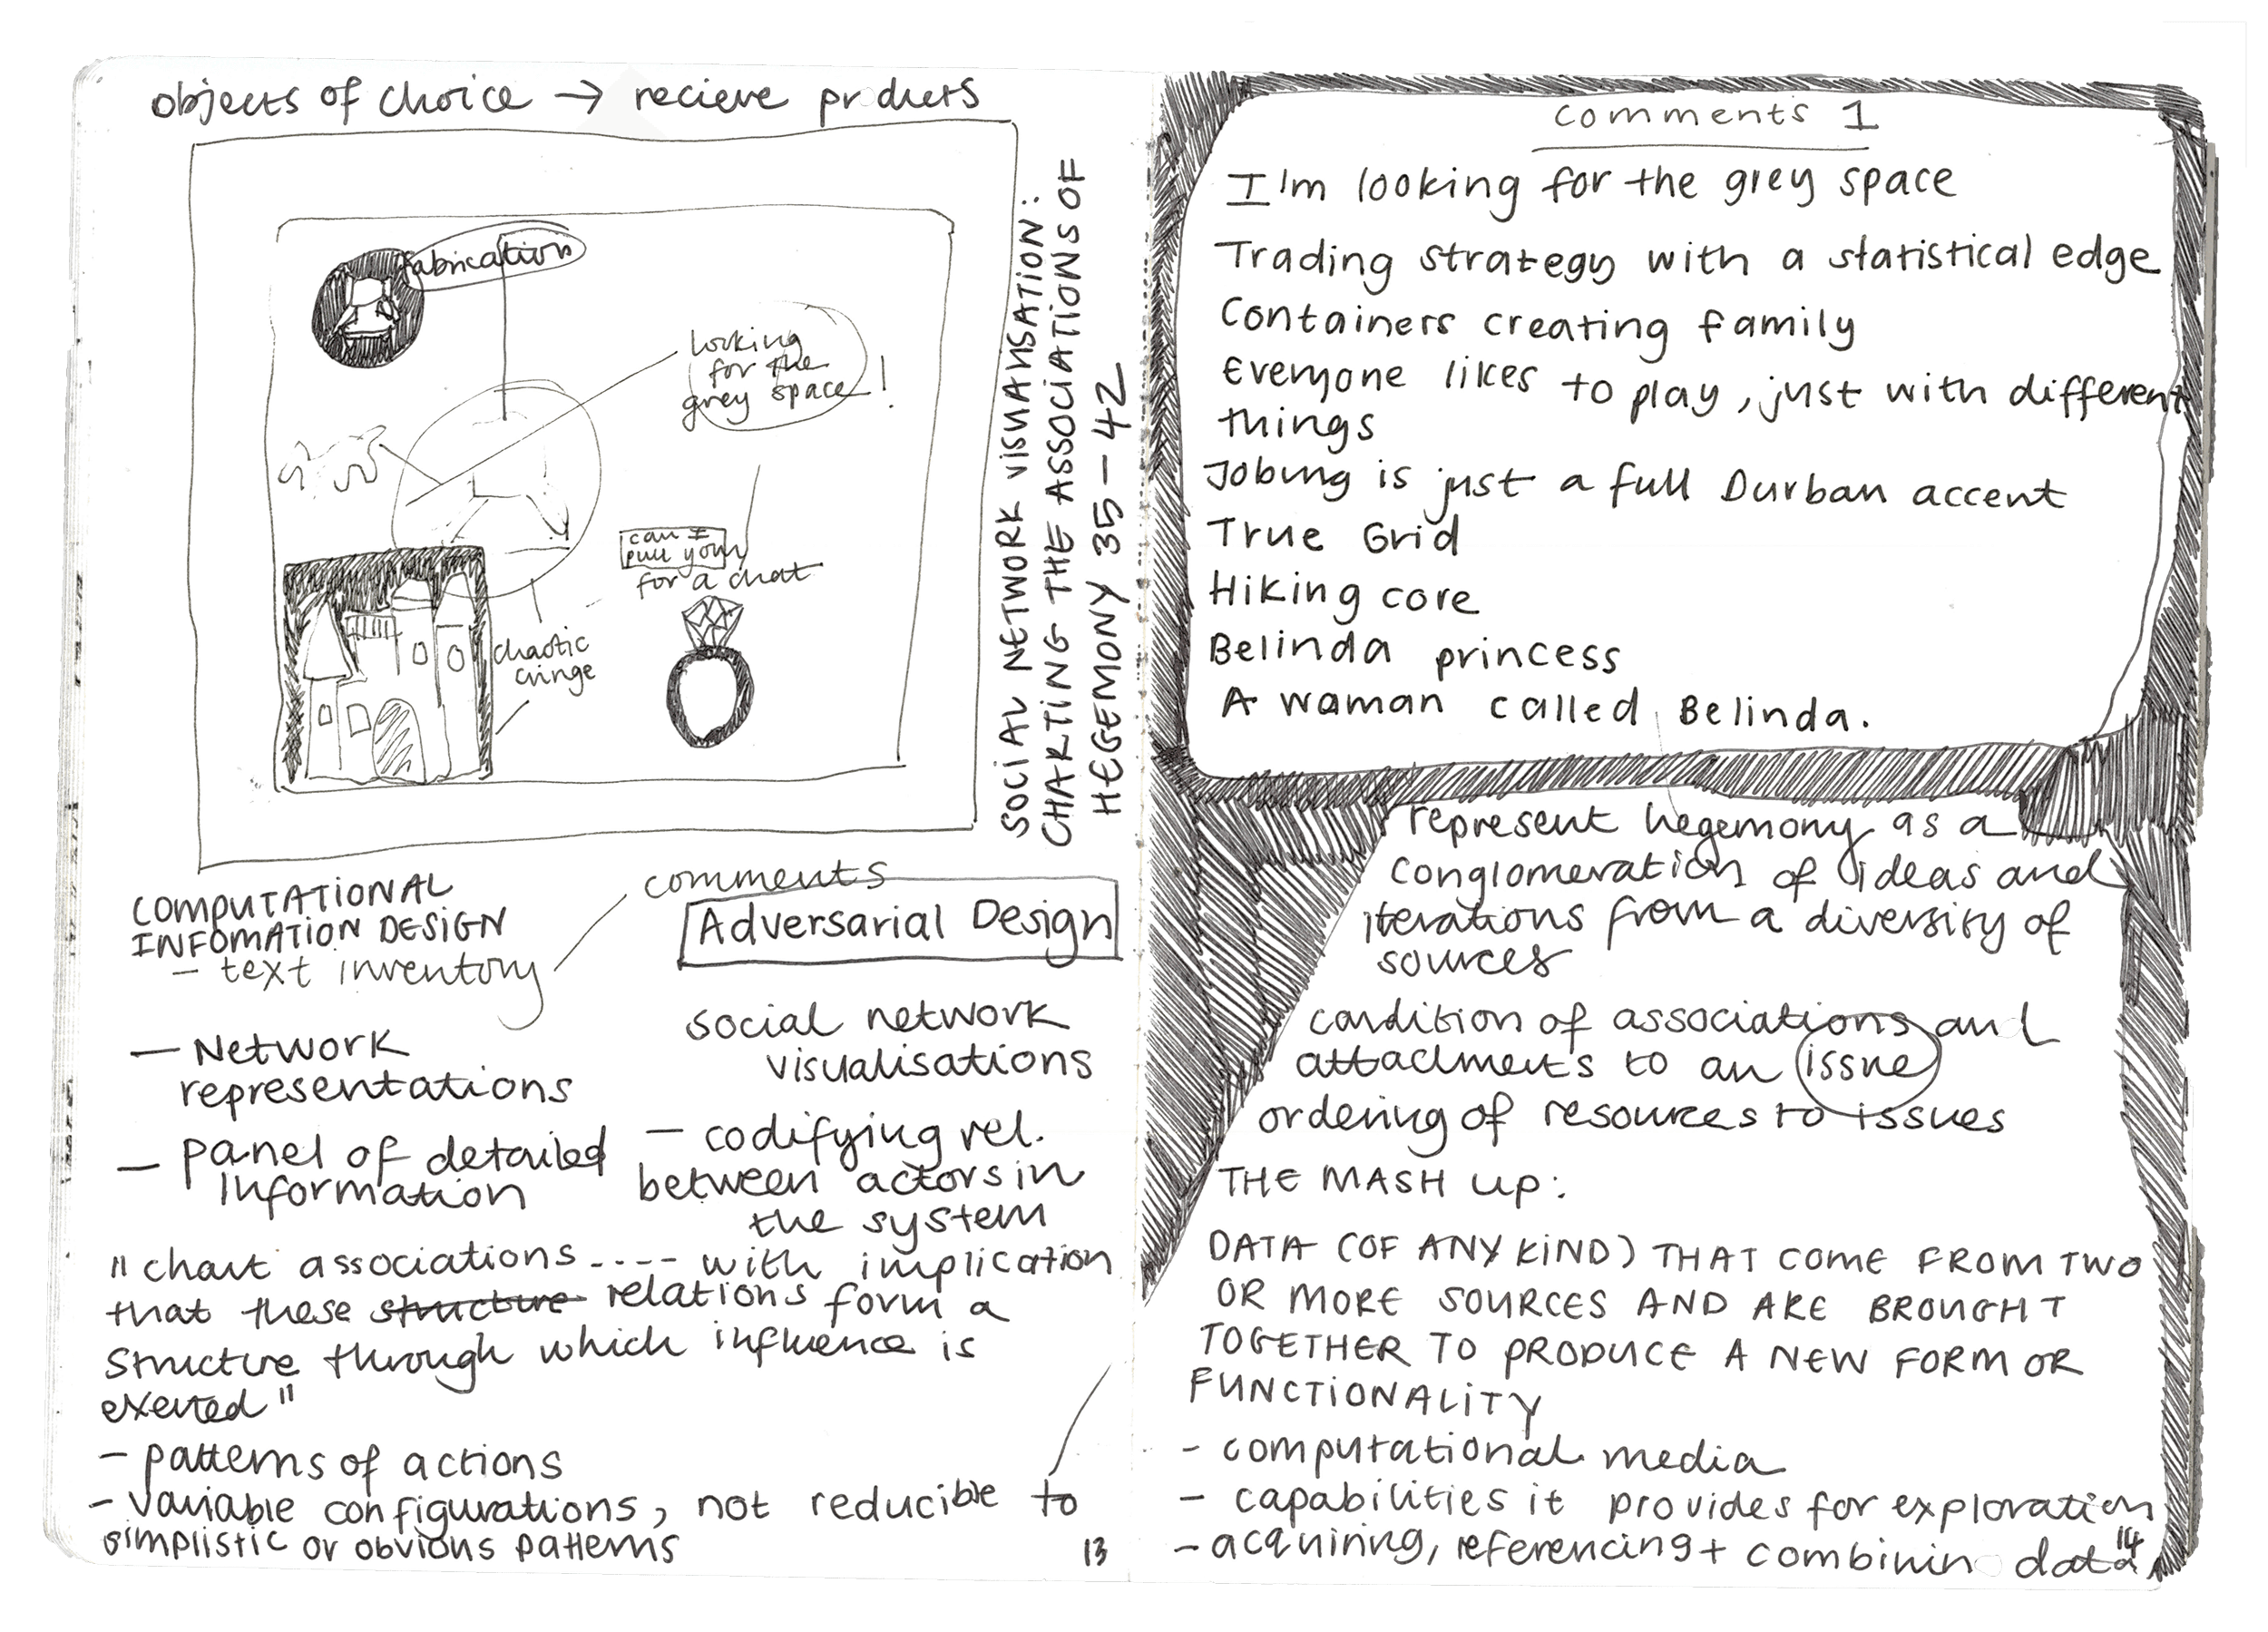 objects of choice → recieve products
fabrication
looking
for the
grey space!
can I
pull you
for a chat
chaotic
cringe
SOCIAL NETWORK VISUALISATION:
CHARTING THE ASSOCIATIONS OF
HEGEMONY 35-42
COMPUTATIONAL
INFOMATION DESIGN
- text inventory
comments
Adversarial Design
— Network
representations
— panel of detailed
Information
social network
visualisations
— codifying rel.
between actors in
the system
"chart associations ---- with implication
that these structure relations form a
structure through which influence is
exerted"
- patterns of actions
- variable configurations, not reducible to
simplistic or obvious patterns
13
comments 1
I'm looking for the grey space
Trading strategy with a statistical edge
Containers creating family
Everyone likes to play, just with different
things
Joburg is just a full Durban accent
True Grid
Hiking core
Belinda princess
A waman called Belinda.
represent hegemony as a
conglomeration of ideas and
iterations from a diversity of
sources
condition of associations and
attachments to an issue
ordering of resources to issues
THE MASH UP:
DATA (OF ANY KIND) THAT COME FROM TWO
OR MORE SOURCES AND ARE BROUGHT
TOGETHER TO PRODUCE A NEW FORM OR
FUNCTIONALITY
- computational media
- capabilities it provides for exploration
- acquiring, referencing + combinin data
14